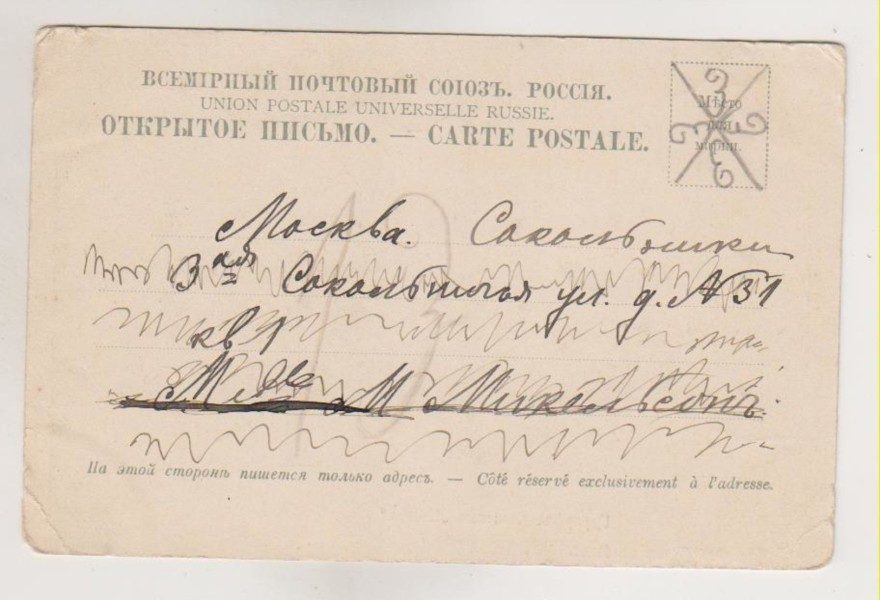 ВСЕМІРНЫЙ ПОЧТОВЫЙ СОЮЗЪ. РОССІЯ.
UNION POSTALE UNIVERSELLE RUSSIE.
ОТКРЫТОЕ ПИСЬМО. — CARTE POSTALE.
Мѣсто
для
марки.
13
Москва. Сокольники
3ая Сокольничья ул. д. № 31
кв 1
Mlle М Микельсонъ
На этой сторонѣ пишется только адресъ. — Côté réservé exclusivement à l'adresse.